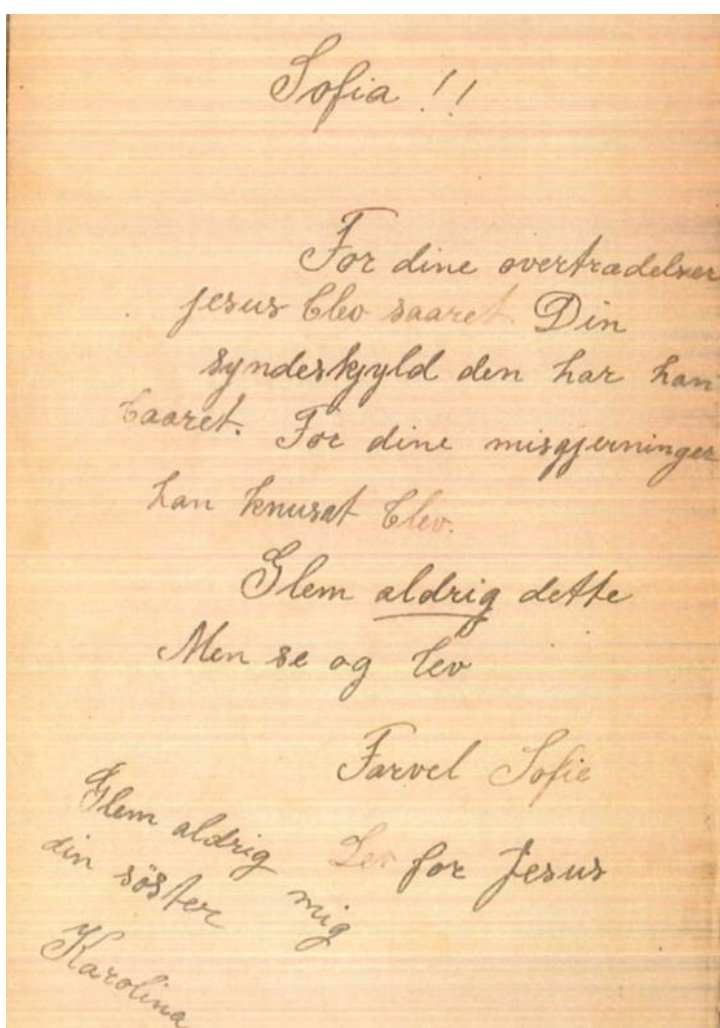 Sofia !!
For dine overtrædelser
Jesus blev saaret Din
syndeskyld den har han
baaret. For dine misgjerninger
han knusat blev.
Glem aldrig dette
Men se og lev
Farvel Sofie
Lev for Jesus
Glem aldrig mig
din söster
Karolina